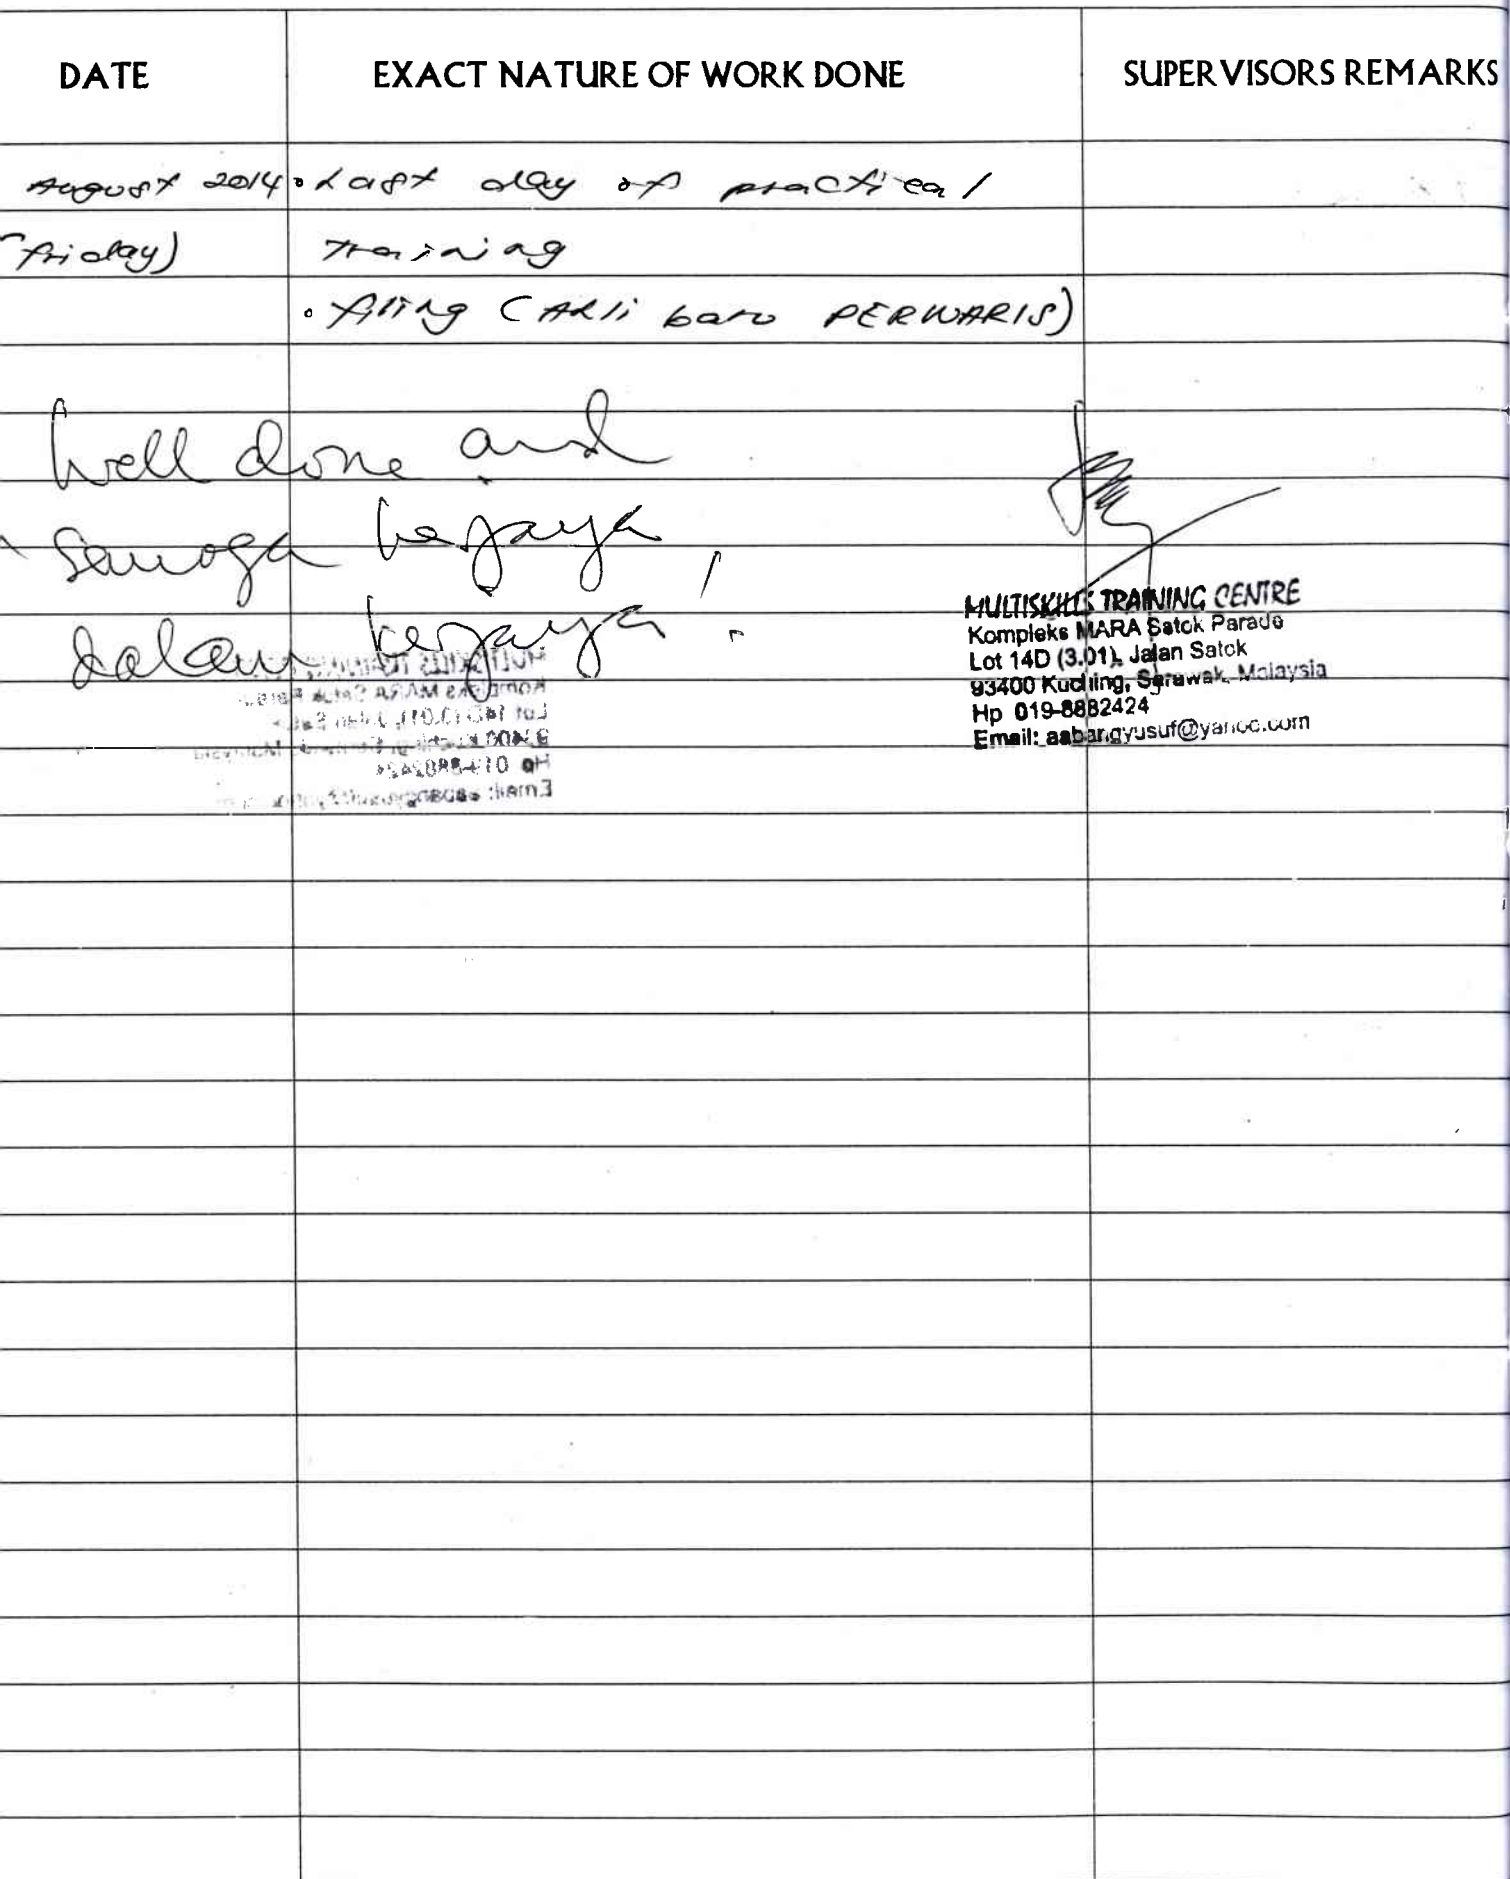 DATE EXACT NATURE OF WORK DONE SUPERVISORS REMARKS
August 2014 • Last day of practical
friday) training
• filing (Ahli baru PERWARIS)
Well done and
semoga berjaya
dalam kerjaya!
MULTISKILLS TRAINING CENTRE
Kompleks MARA Satok Parade
Lot 14D (3.01), Jalan Satok
93400 Kuching, Sarawak, Malaysia
Hp 019-8882424
Email: aabangyusuf@yahoo.com